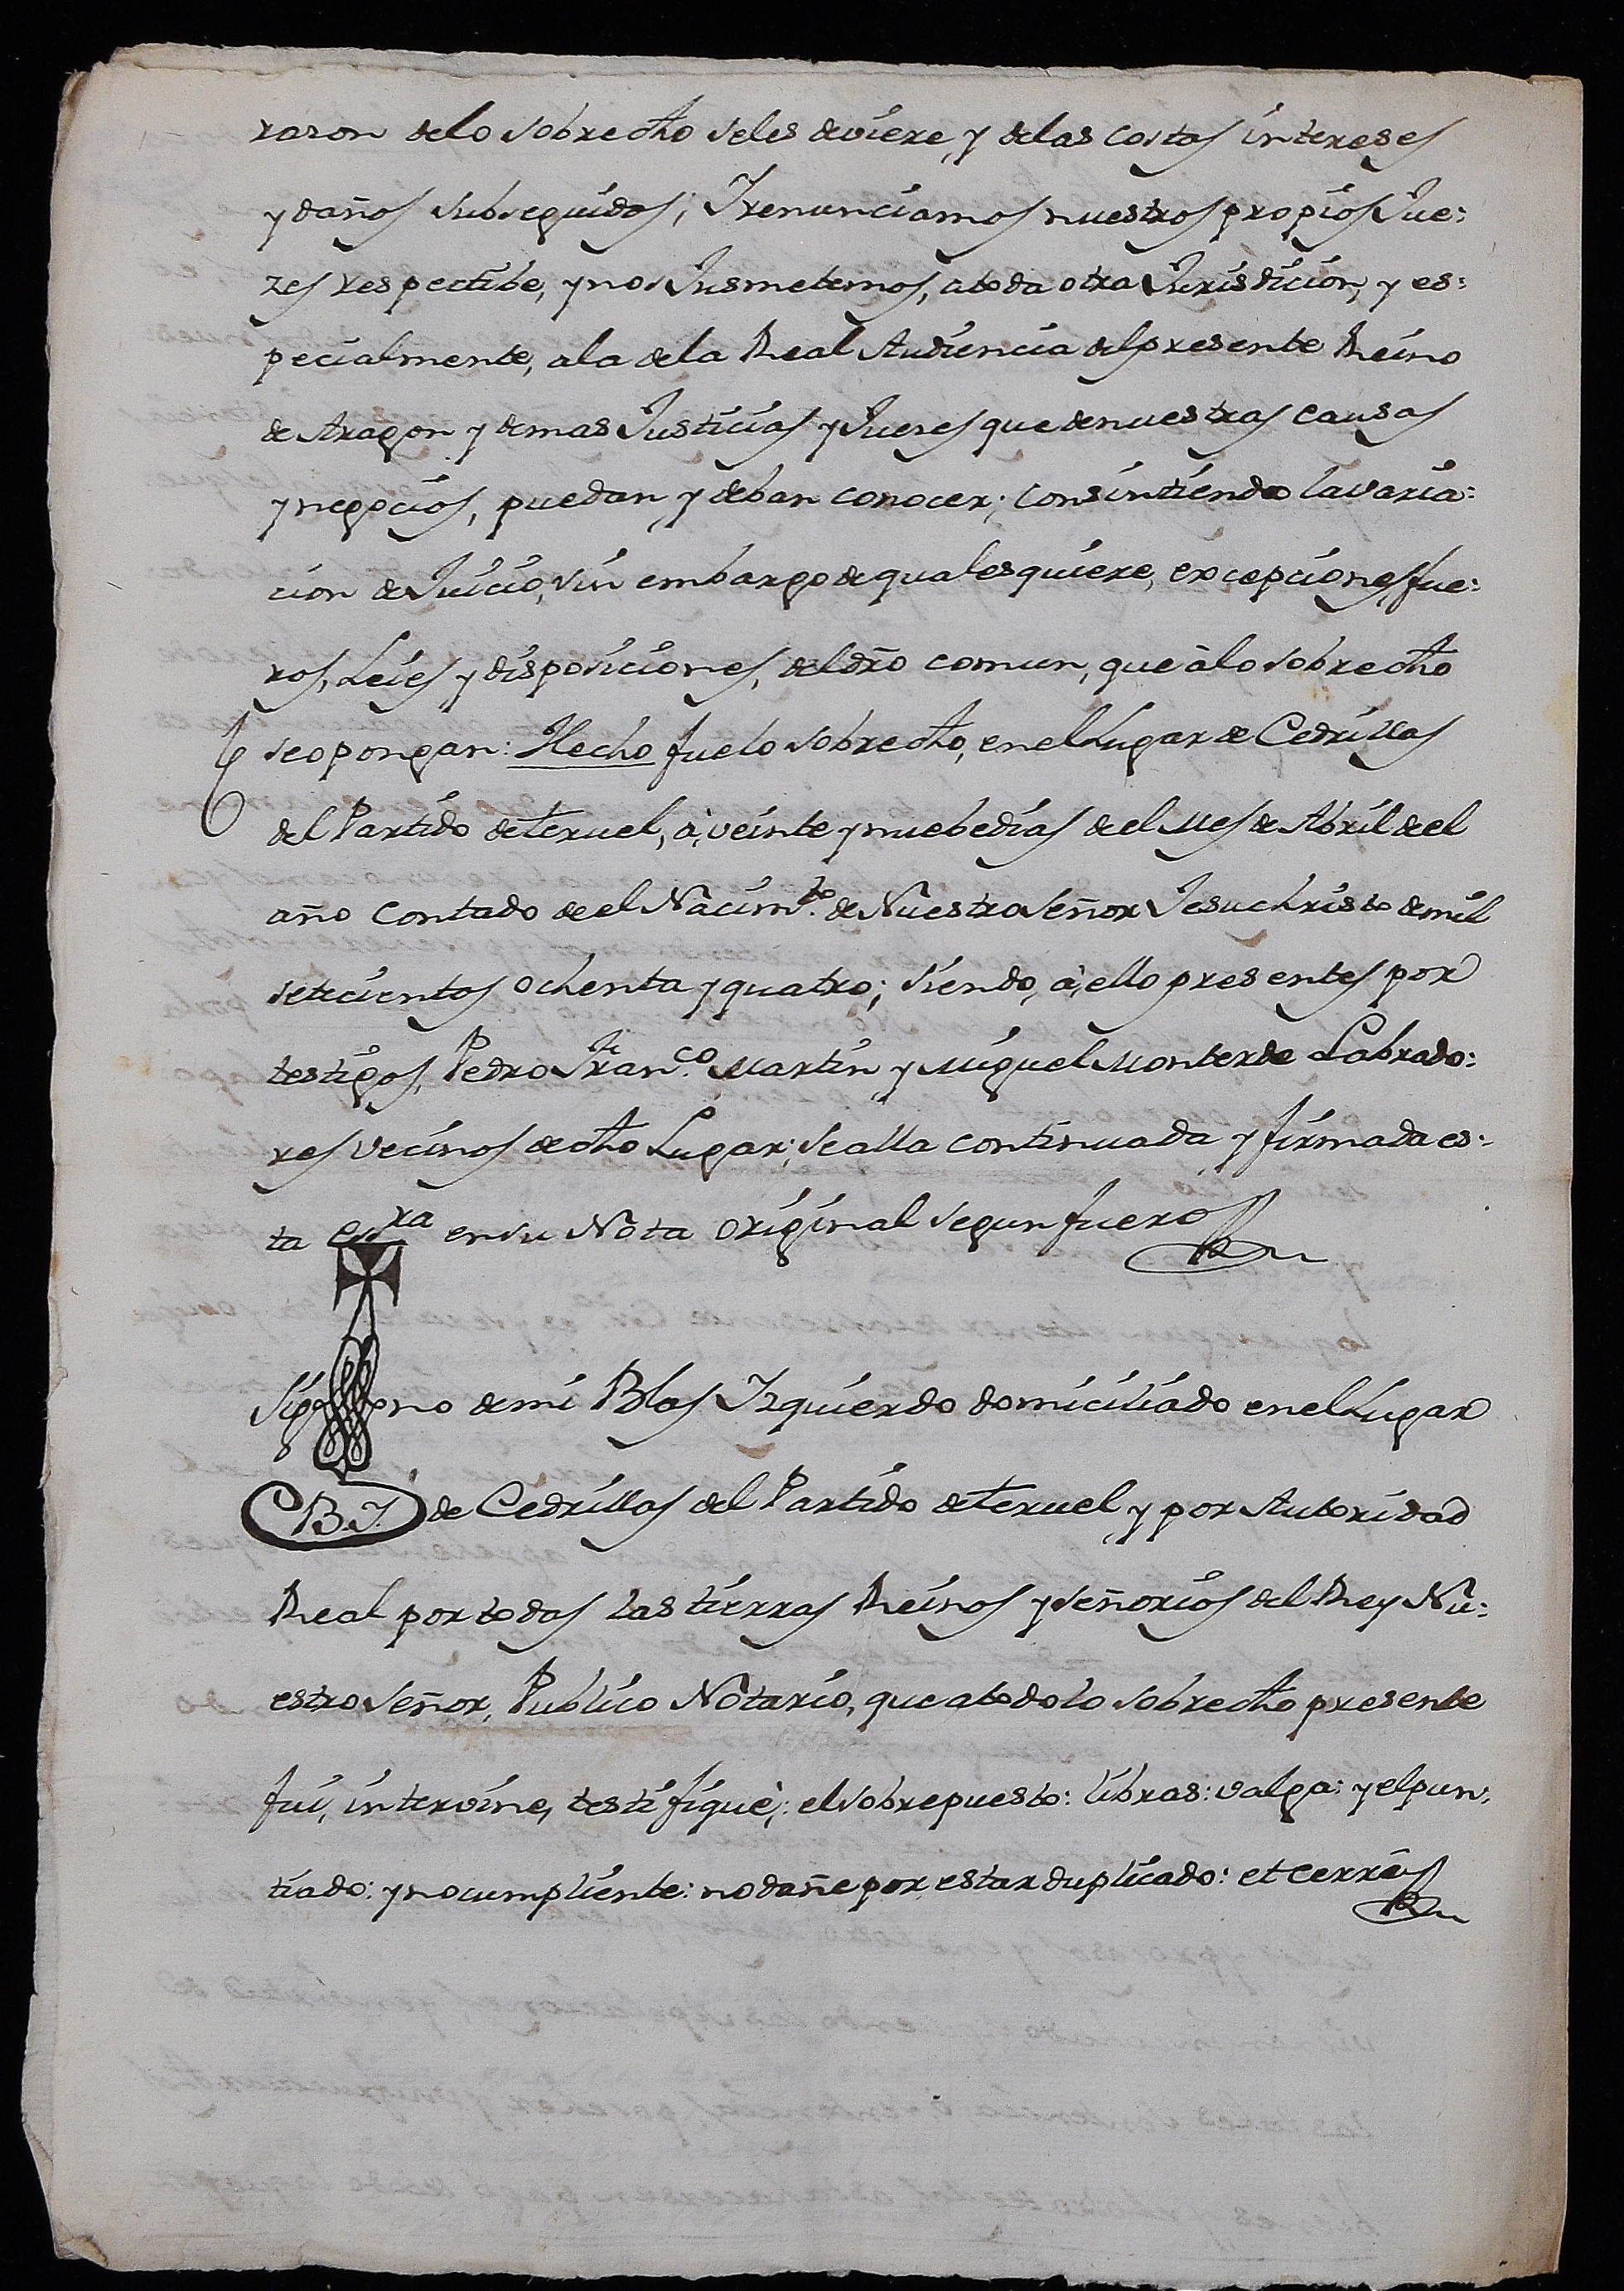 razon delo sobredho seles deviere, y delas costas intereses
y daños subseguidos; Y renunciamos nuestros propios Jue:
zes respectibe, y nos Jusmetemos, atoda otra Jurisdicion, y es:
pecialmente, ala dela Real Audiencia del presente Reino
de Aragon y demas Justicias y Jueses que denuestras causas
y negocios, puedan y deban conocer; consintiendo lavaria:
cion de Juicio, sin embargo de qualesquiere, excepciones, fue:
ros, Leies y disposiciones, del dro comun, que à lo sobredho
se opongan: Hecho fuelo sobredho, enel Lugar de Cedrillas
del Partido de Teruel, à, veinte y nuebedias de el Mes de Abril de el
año contado de el Nacimto. de Nuestro Señor Jesuchristo de mil
setecientos ochenta y quatro; siendo, à, ello presentes por
testigos, Pedro Franco. Martin y Miguel Monterde Labrado:
res vecinos de dho Lugar; se alla continuada y firmada es:
ta esra en su Nota original segun fuero
Sig no de mi Blas Izquierdo domiciliado enel Lugar
B.I. de Cedrillas del Partido de Teruel y por Autoridad
Real por todas las tierras Reinos y señorios del Rey Nu:
estro Señor, Publico Notario, que atodo lo sobredho presente
fui, intervine, testifiquè; el sobrepuesto: libras: valga: y elpun:
tiado: y no cumpliente: no dañe por estar duplicado: et cerrè